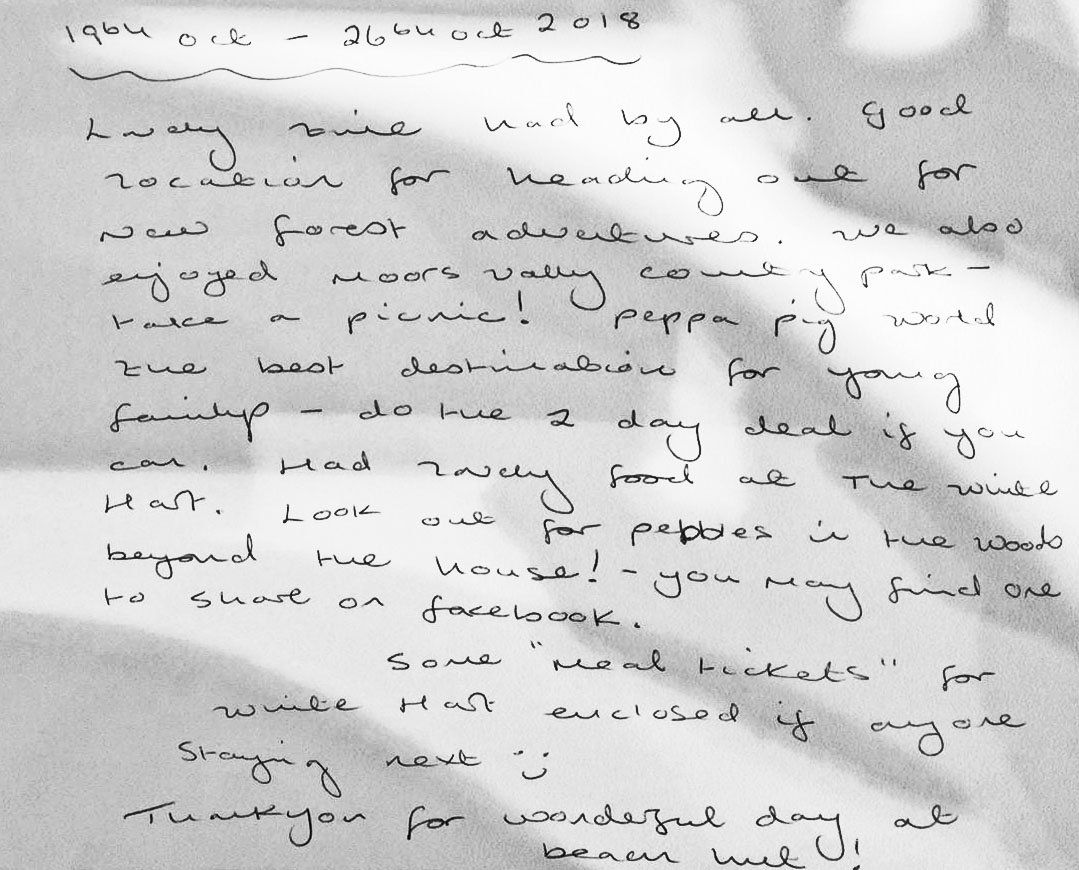 19th oct - 26th oct 2018
Lovely time had by all. Good
location for heading out for
New forest adventures. We also
enjoyed Moors vally country park -
take a picnic! Peppa pig world
the best destination for young
family - do the 2 day deal if you
can. Had lovely food at The White
Hart. Look out for pebbles in the woods
beyond the house! - you may find one
to share on facebook.
Some "meal tickets" for
White Hart enclosed if anyone
staying next :)
Thankyou for wonderful day at
beach hut!